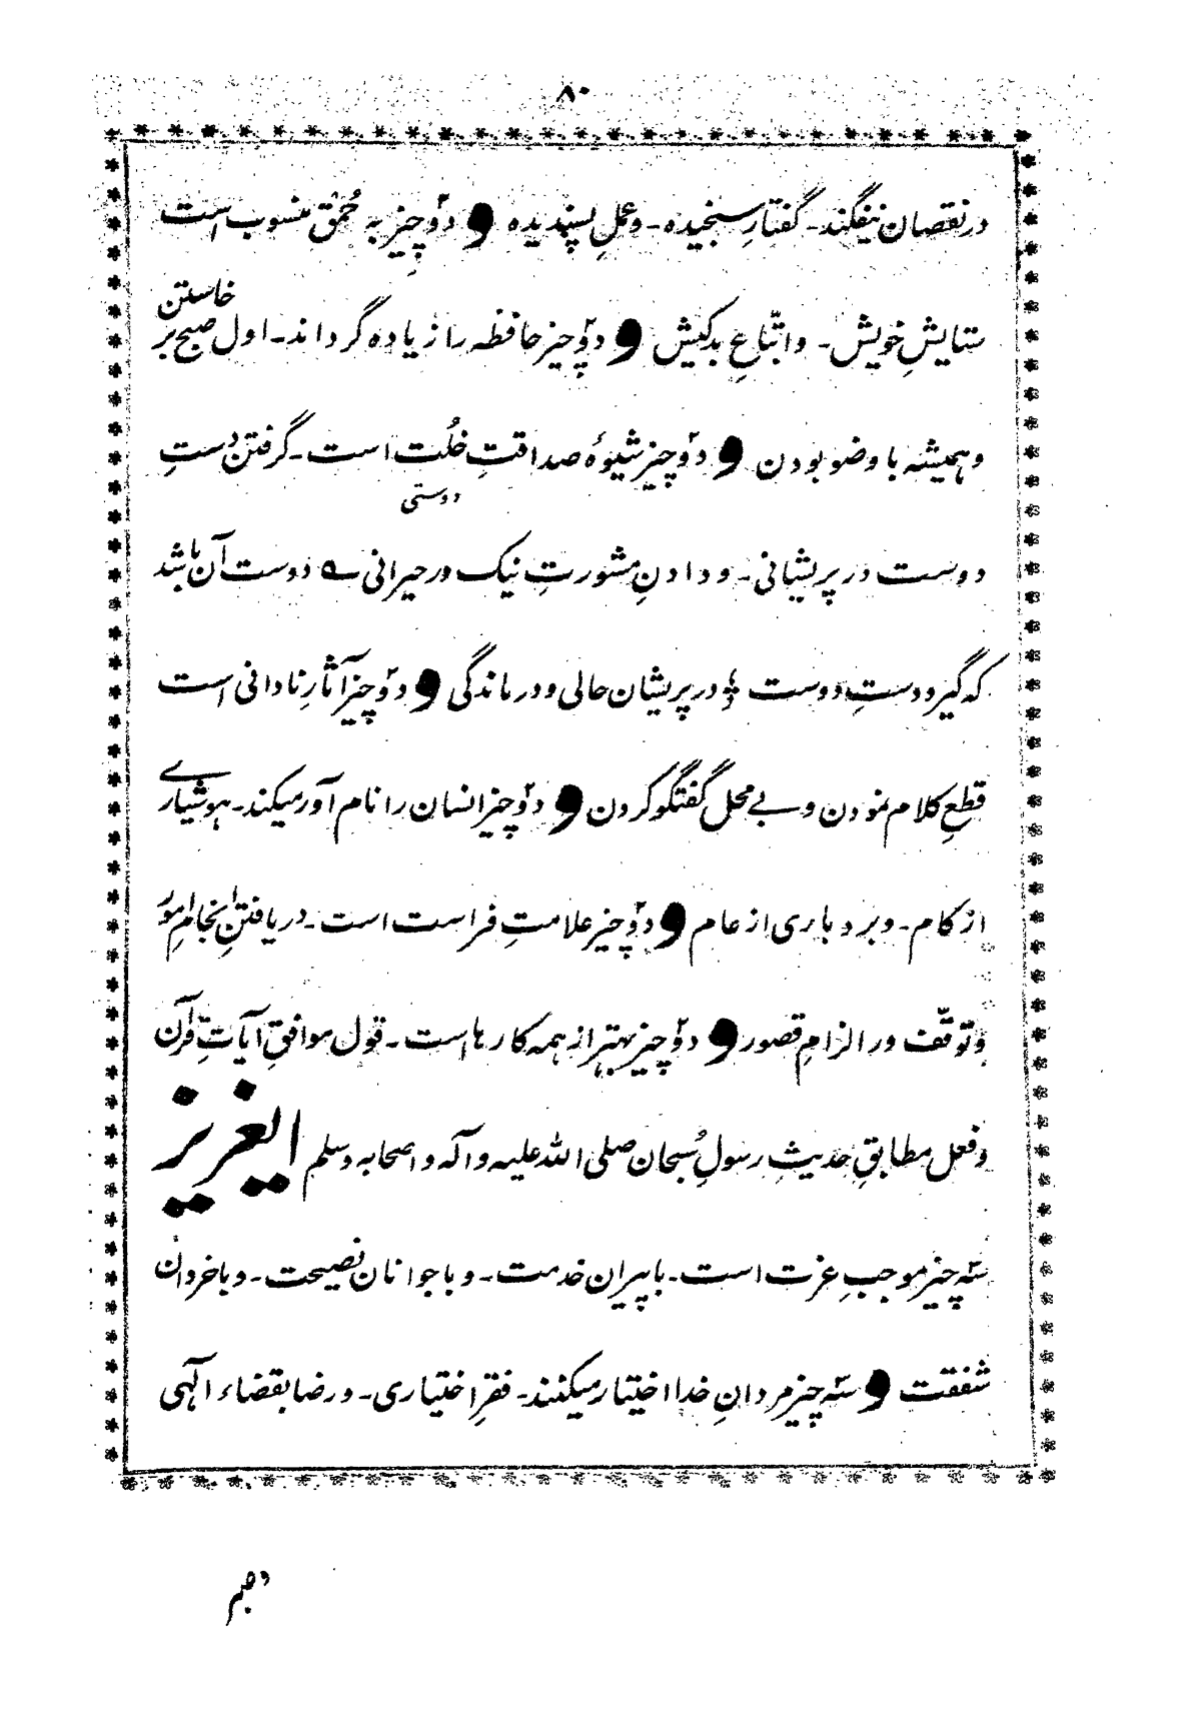 ۸۰
در نقصان نیفگند۔ گفتارِ سنجیدہ۔ و عملِ پسندیدہ و دو چیز بہ حُمق منسوب است
ستایشِ خویش۔ و اتّباعِ بدکیش و دو چیز حافظہ را زیادہ گرداند۔ اول صبح بر خاستن
و ہمیشہ با وضو بودن و دو چیز شیوۂ صداقتِ خُلت است۔ گرفتن دستِ
دوستی
دوست در پریشانی۔ و دادنِ مشورتِ نیک در حیرانی ؎ دوست آن باشد
کہ گیرد دستِ دوست ؛ در پریشان حالی و درماندگی و دو چیز آثارِ نادانی است
قطعِ کلام نمودن و بے محل گفتگو کردن و دو چیز انسان را نام آور میکند۔ ہوشیارے
از کام۔ و بردباری از عام و دو چیز علامتِ فراست است۔ دریافتنِ انجامِ امور
و توقّف در الزامِ قصور و دو چیز بہتر از ہمہ کارہا است۔ قول موافقِ آیاتِ قرآن
و فعل مطابقِ حدیثِ رسولِ سُبحان صلی اللہ علیہ و آلہ و اصحابہ وسلم ایعزیز
سہ چیز موجبِ عزت است۔ با پیران خدمت۔ و با جوانان نصیحت۔ و با خردان
شفقت و سہ چیز مردانِ خدا اختیار میکنند۔ فقرِ اختیاری۔ و رضا بقضاء الٰہی